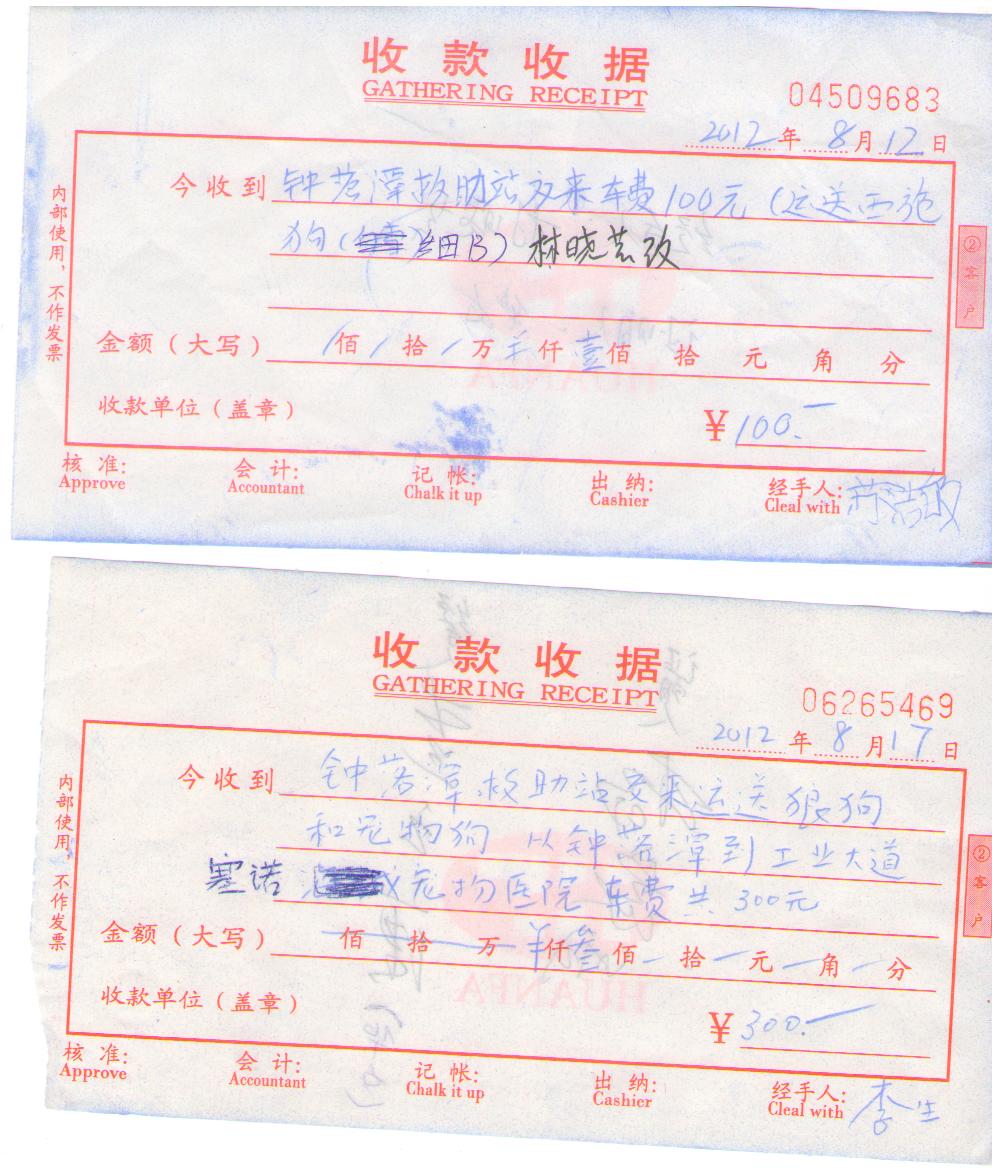 收款收据
GATHERING RECEIPT
04509683
2012年8月12日
今收到 钟落潭救助站交来车费100元(运送西施
狗(细B) 林晓芸改
金额(大写) 佰 拾 万 仟壹佰 拾 元 角 分
收款单位(盖章) ¥100.
核准: 会计: 记帐: 出纳: 经手人:
Approve Accountant Chalk it up Cashier Cleal with
内部使用,不作发票
②客户
HUANFA
收款收据
GATHERING RECEIPT
06265469
2012年8月17日
今收到 钟落潭救助站交来运送狼狗
和宠物狗 从钟落潭到工业大道
塞诺 宠物医院 车费共300元
金额(大写) 佰 拾 万 仟叁佰 拾 元 角 分
收款单位(盖章) ¥300.
核准: 会计: 记帐: 出纳: 经手人: 李生
Approve Accountant Chalk it up Cashier Cleal with
内部使用,不作发票
②客户
HUANFA